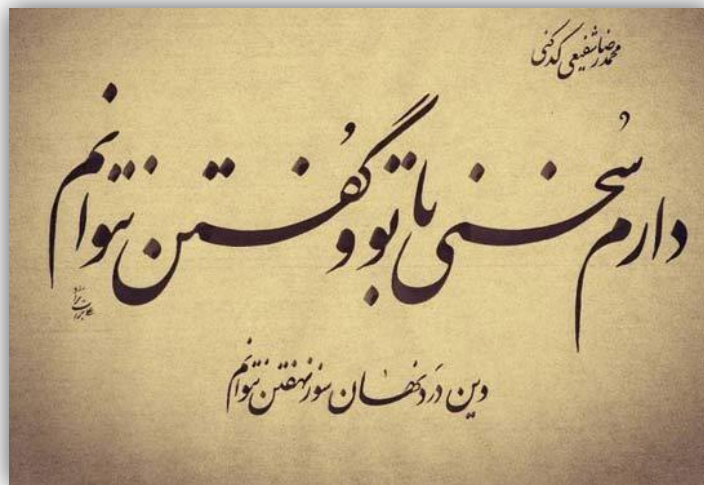 محمدرضا شفیعی کدکنی
دارم سُخنی با تو و گُفتن نتوانم
وین دَرد نهان سوز نهفتن نتوانم